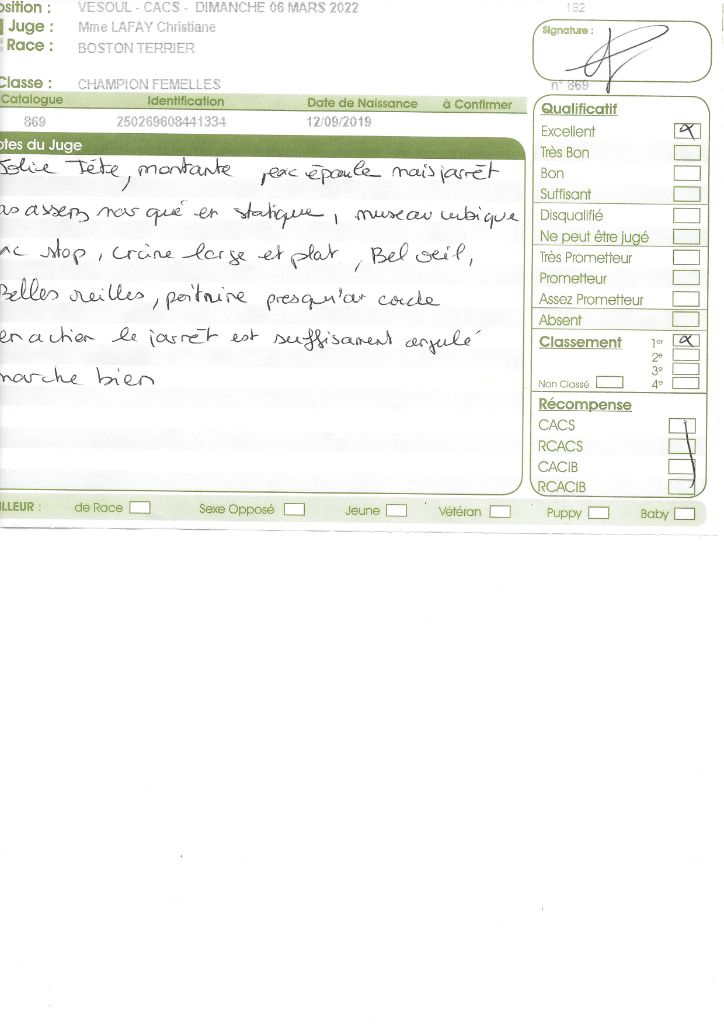 osition : VESOUL - CACS - DIMANCHE 06 MARS 2022 182
Juge : Mme LAFAY Christiane
Race : BOSTON TERRIER
Signature :
Classe : CHAMPION FEMELLES n° 869
Catalogue Identification Date de Naissance à Confirmer
869 250269608441334 12/09/2019
otes du Juge
Jolie Tête, montante, épaule mais jarrêt
as assez marqué en statique, museau cubique
ac stop, crâne large et plat, Bel oeil,
Belles oreilles, poitrine presqu'au coude
en action le jarrêt est suffisament angulé
marche bien
Qualificatif
Excellent
Très Bon
Bon
Suffisant
Disqualifié
Ne peut être jugé
Très Prometteur
Prometteur
Assez Prometteur
Absent
Classement 1er
2e
3e
Non Classé 4e
Récompense
CACS
RCACS
CACIB
RCACIB
ILLEUR : de Race Sexe Opposé Jeune Vétéran Puppy Baby